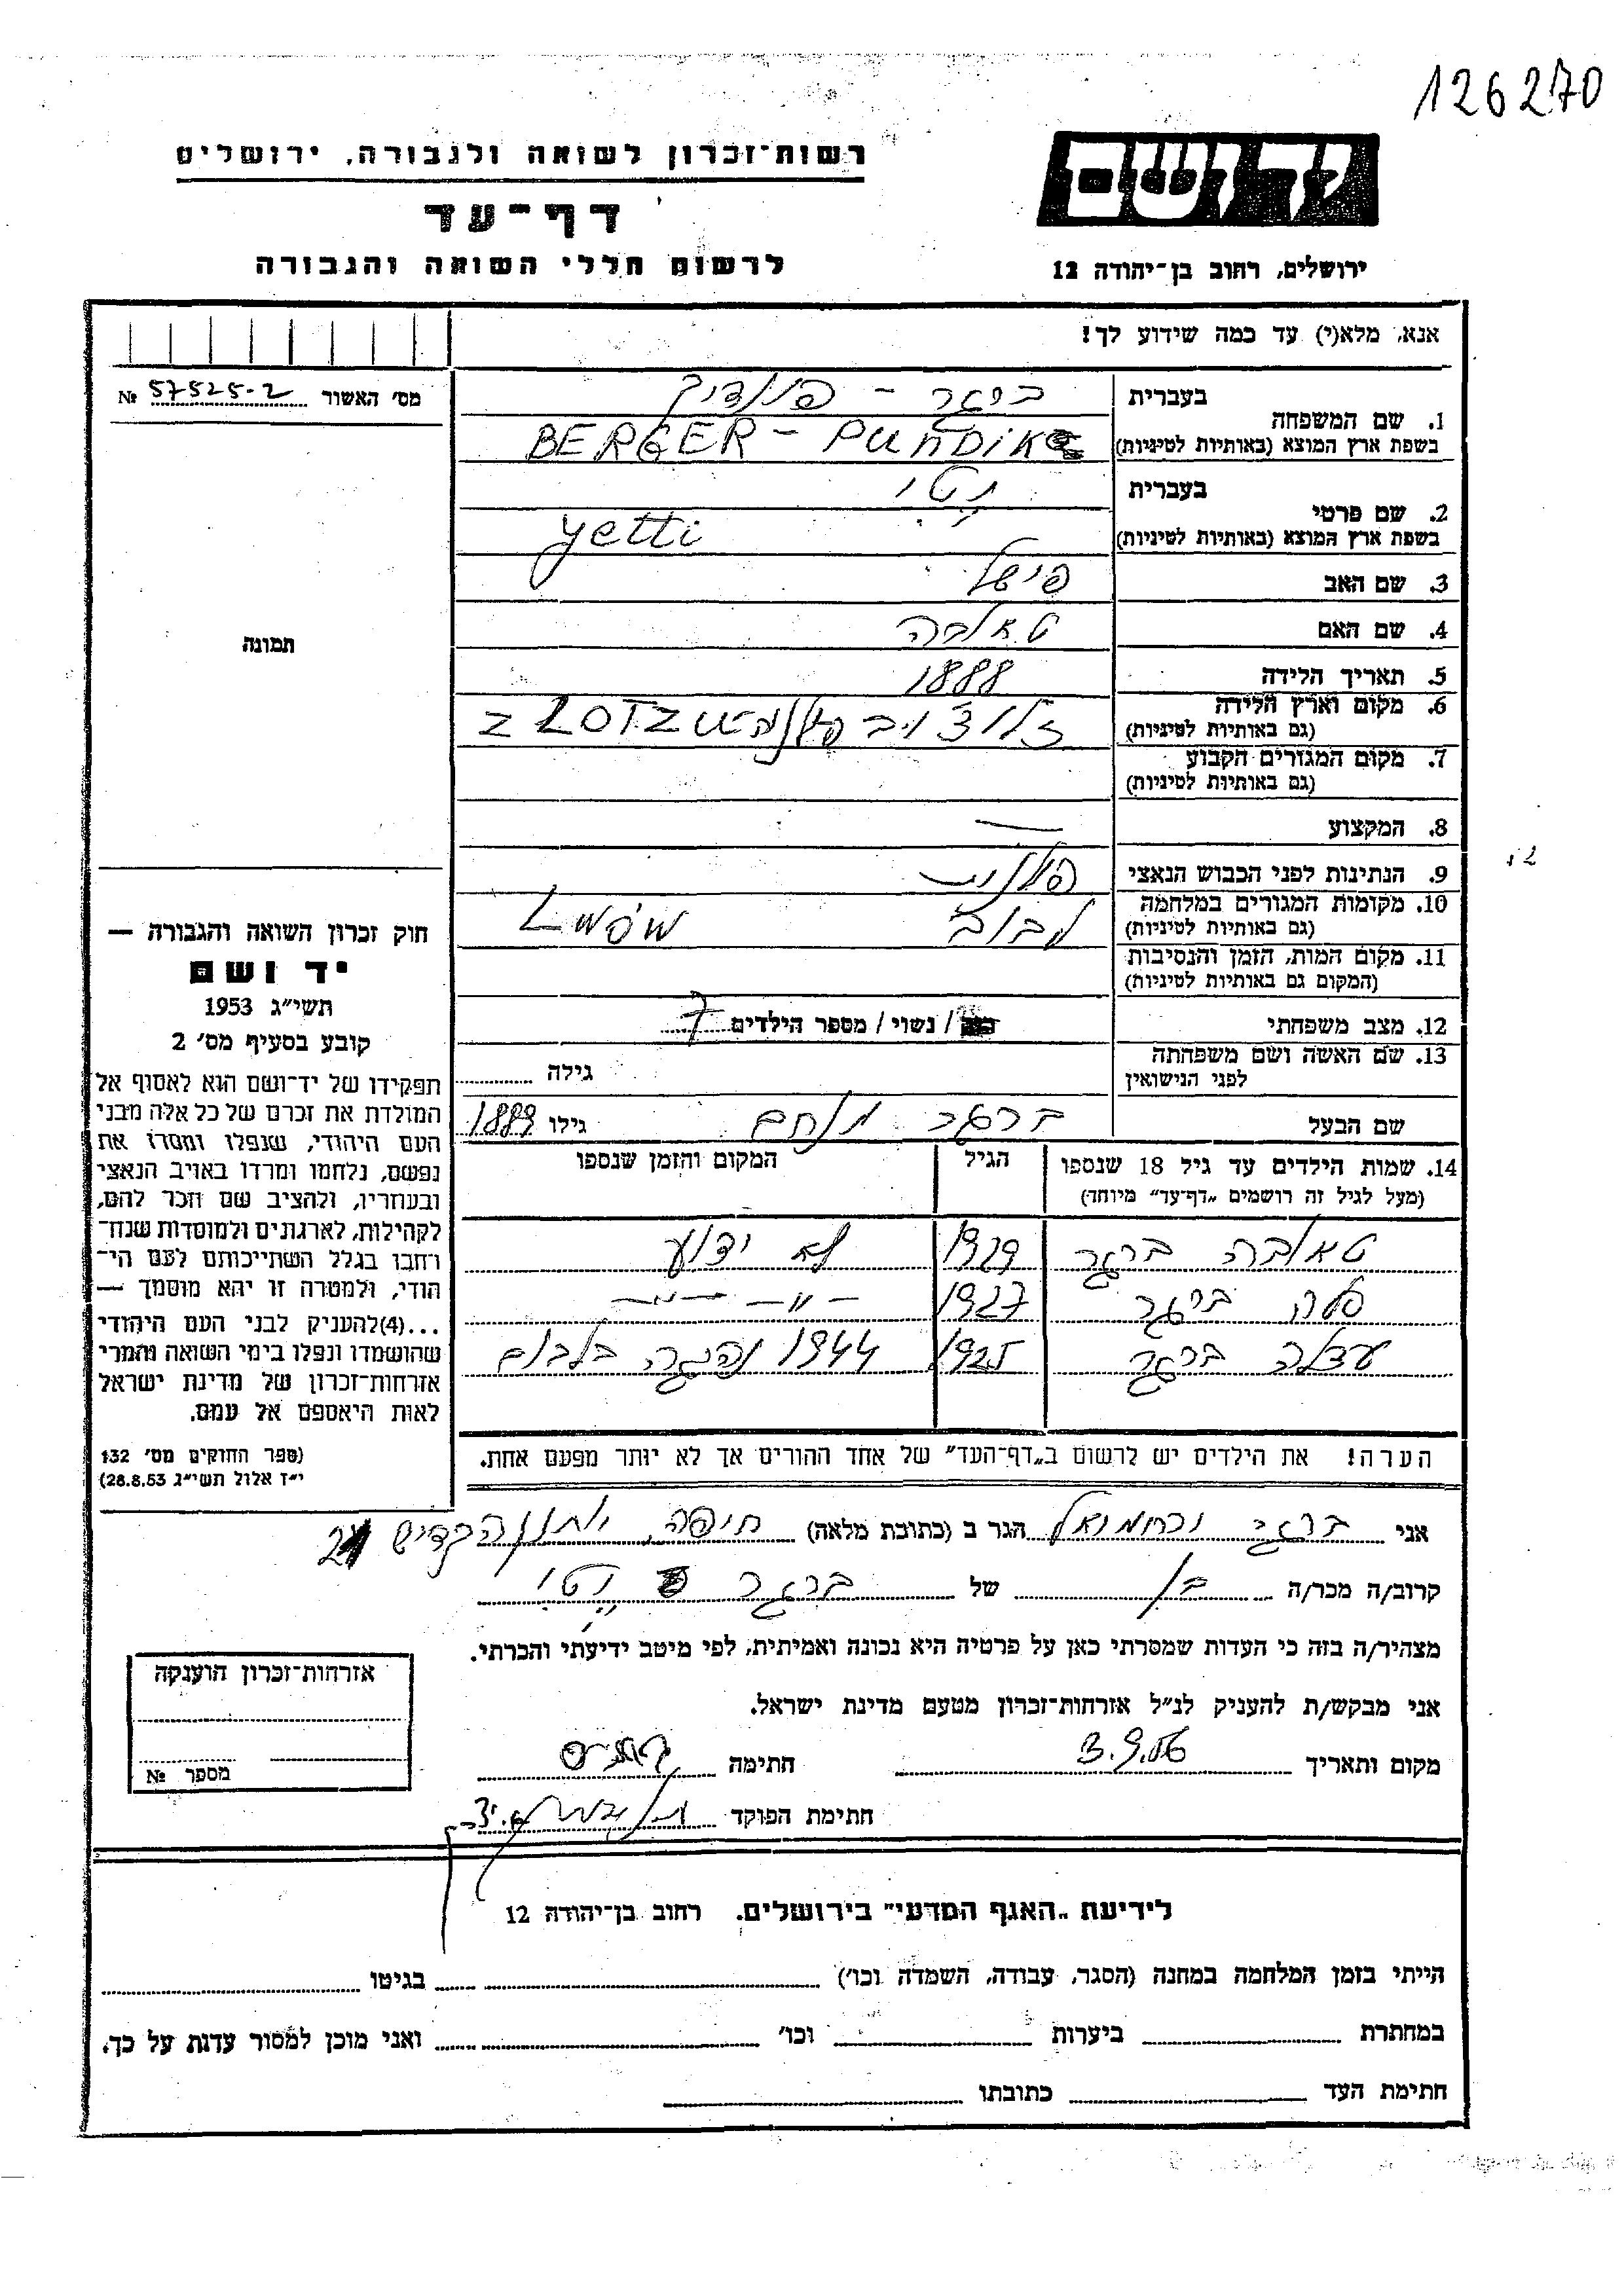 126270
רשות־זכרון לשואה ולגבורה, ירושלים
דף־עד
לרשום חללי השואה והגבורה
יד ושם
ירושלים, רחוב בן־יהודה 12
אנא, מלא(י) עד כמה שידוע לך!
מס׳ האשור 57525-2 №
תמונה
1. שם המשפחה
בעברית ברגר - פונדיק
בשפת ארץ המוצא (באותיות לטיניות) BERGER - PUNDIK
2. שם פרטי
בעברית יטי
בשפת ארץ המוצא (באותיות לטיניות) yetti
3. שם האב פישל
4. שם האם טאובה
5. תאריך הלידה 1888
6. מקום וארץ הלידה
(גם באותיות לטיניות) זלוצ׳וב פולניה ZLOTZU
7. מקום המגורים הקבוע
(גם באותיות לטיניות)
8. המקצוע —
9. הנתינות לפני הכבוש הנאצי
10. מקומות המגורים במלחמה
(גם באותיות לטיניות) לבוב
11. מקום המות, הזמן והנסיבות
(המקום גם באותיות לטיניות)
12. מצב משפחתי / נשוי / מספר הילדים 7
13. שם האשה ושם משפחתה
לפני הנישואין גילה
שם הבעל ברגר מנחם גילו 1889
14. שמות הילדים עד גיל 18 שנספו הגיל המקום והזמן שנספו
(מעל לגיל זה רושמים „דף־עד״ מיוחד)
טאובה ברגר 1929 לא ידוע
פלה ברגר 1927 — ״ — ״ —
ברגר 1925 1944 נהרגה
הערה! את הילדים יש לרשום ב„דף־העד״ של אחד ההורים אך לא יותר מפעם אחת.
חוק זכרון השואה והגבורה —
יד ושם
תשי״ג 1953
קובע בסעיף מס׳ 2
תפקידו של יד־ושם הוא לאסוף אל
המולדת את זכרם של כל אלה מבני
העם היהודי, שנפלו ומסרו את
נפשם, נלחמו ומרדו באויב הנאצי
ובעוזריו, ולהציב שם וזכר להם,
לקהילות, לארגונים ולמוסדות שנח־
רחבו בגלל השתייכותם לעם הי־
הודי, ולמטרה זו יהא מוסמך —
...(4)להעניק לבני העם היהודי
שהושמדו ונפלו בימי השואה והמרי
אזרחות־זכרון של מדינת ישראל
לאות היאספם אל עמם.
(ספר החוקים מס׳ 132
י״ז אלול תשי״ג 28.8.53)
אני ברגר הגר ב (כתובת מלאה) חיפה,
קרוב/ה מכר/ה בן של ברגר יטי
מצהיר/ה בזה כי העדות שמסרתי כאן על פרטיה היא נכונה ואמיתית, לפי מיטב ידיעתי והכרתי.
אני מבקש/ת להעניק לנ״ל אזרחות־זכרון מטעם מדינת ישראל.
מקום ותאריך 3.9.56 חתימה
חתימת הפוקד
אזרחות־זכרון הוענקה
מספר №
לידיעת „האגף המדעי״ בירושלים. רחוב בן־יהודה 12
הייתי בזמן המלחמה במחנה (הסגר, עבודה, השמדה וכו׳) בגיטו
במחתרת ביערות וכו׳ ואני מוכן למסור עדות על כך.
חתימת העד כתובתו